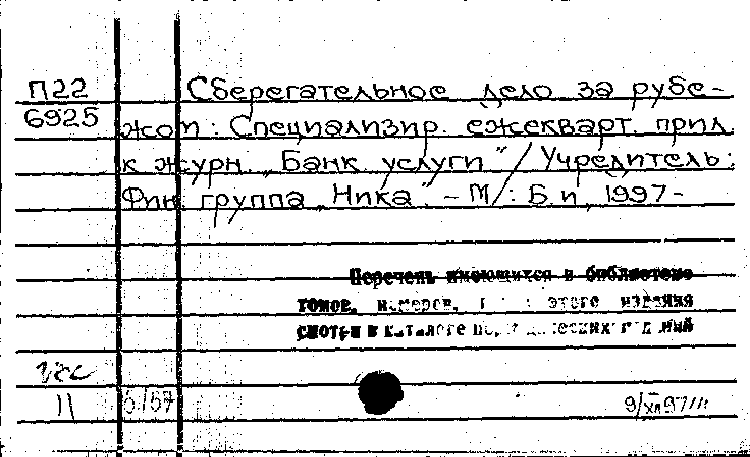 П22
6925
Сберегательное дело за рубе-
жом: Специализир. ежекварт. прил.
к журн. „Банк. услуги" / Учредитель:
Фин. группа „Ника". - М.: Б.и., 1997-
Перечень имеющихся в библиотеке
томов, номеров, этого издания
смотри в каталоге
11
9/XII 97